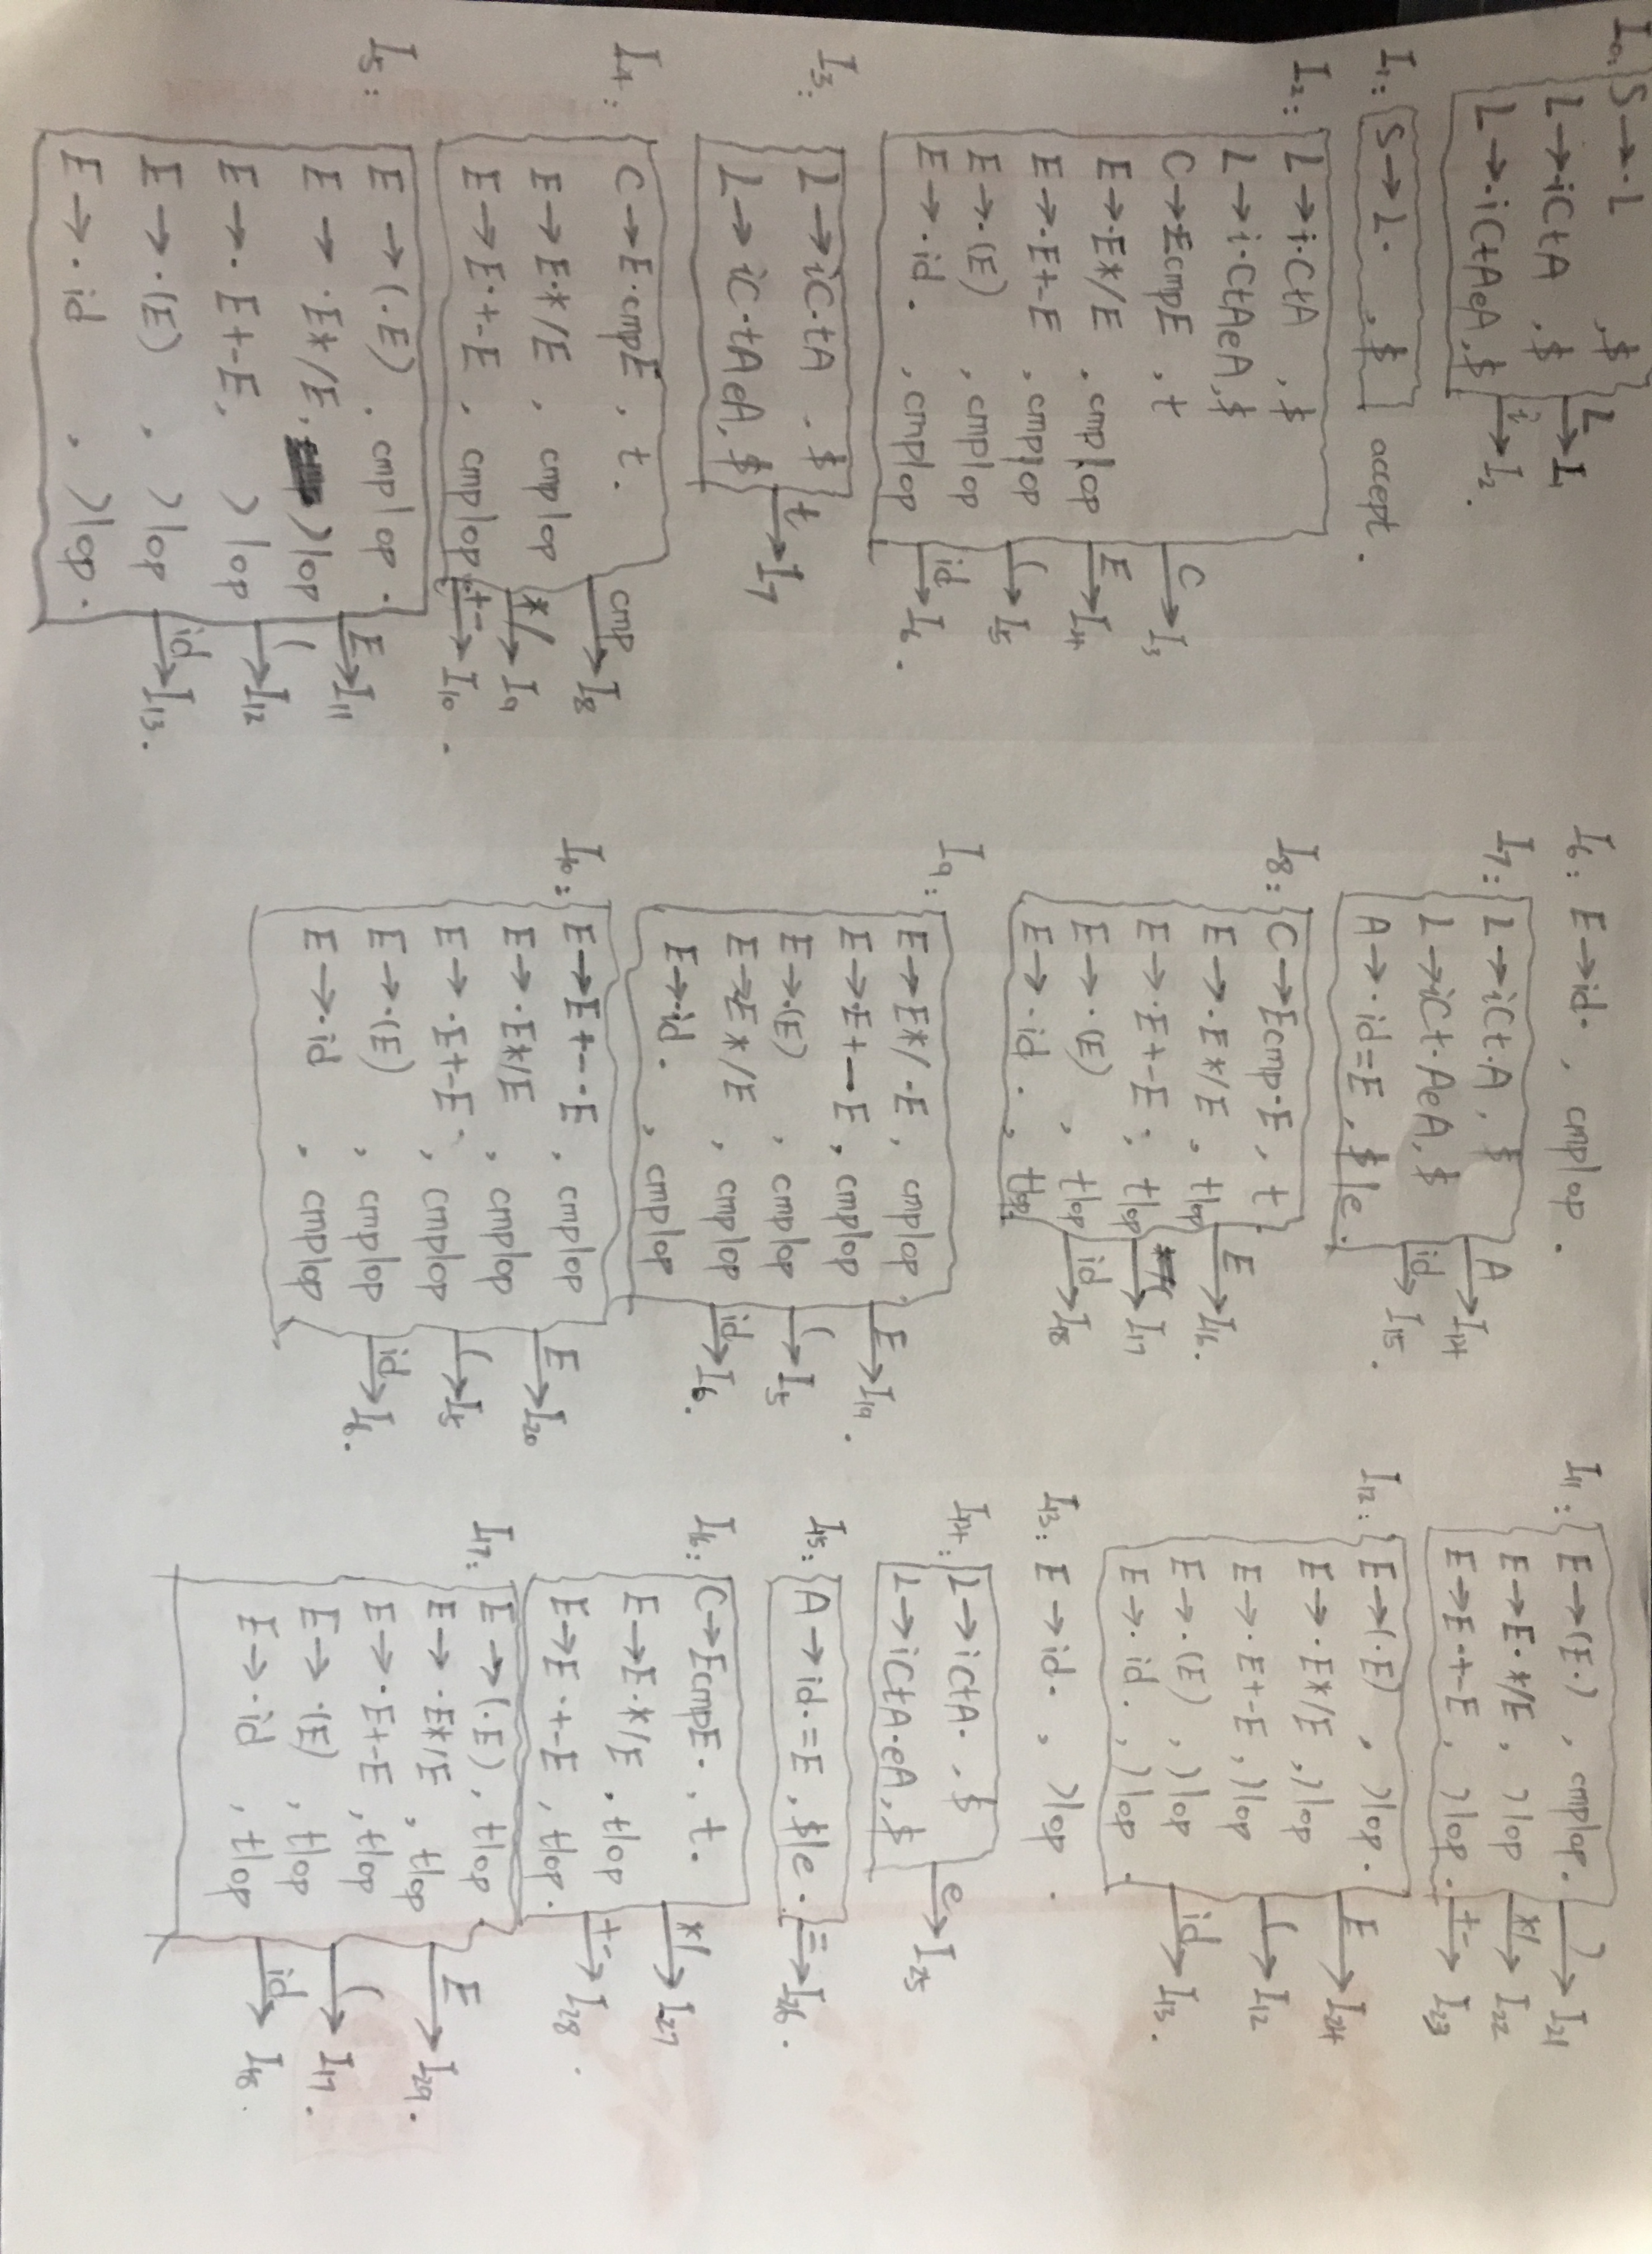 I0: S→·L ,$
L→·iCtA ,$
L→·iCtAeA,$
L→I1
i→I2.
I1: S→L· ,$ accept.
I2: L→i·CtA ,$
L→i·CtAeA,$
C→·EcmpE ,t
E→·E*/E ,cmp|op
E→·E+-E ,cmp|op
E→·(E) ,cmp|op
E→·id. ,cmp|op
C→I3
E→I4
(→I5
id→I6.
I3: L→iC·tA ,$
L→iC·tAeA,$
t→I7
I4: C→E·cmpE, t.
E→E·*/E, cmp|op
E→E·+-E, cmp|op
cmp→I8
*/→I9
+-→I10.
I5: E→(·E) , cmp|op.
E→·E*/E, )|op
E→·E+-E, )|op
E→·(E) , )|op
E→·id , )|op.
E→I11
(→I12
id→I13.
I6: E→id· , cmp|op.
I7: L→iCt·A, $
L→iCt·AeA,$
A→·id=E, $|e.
A→I14
id→I15.
I8: C→Ecmp·E, t.
E→·E*/E , t|op
E→·E+-E , t|op
E→·(E) , t|op
E→·id. , t|op.
E→I16.
(→I17
id→I18
I9: E→E*/·E, cmp|op.
E→·E+-E, cmp|op
E→·(E) , cmp|op
E→·E*/E , cmp|op
E→·id. , cmp|op
E→I19.
(→I5
id→I6.
I10: E→E+-·E , cmp|op
E→·E*/E , cmp|op
E→·E+-E , cmp|op
E→·(E) , cmp|op
E→·id , cmp|op
E→I20
(→I5
id→I6.
I11: E→(E·) , cmp|op.
E→E·*/E, )|op
E→E·+-E, )|op.
)→I21
*/→I22
+-→I23
I12: E→(·E) , )|op.
E→·E*/E ,)|op
E→·E+-E ,)|op
E→·(E) , )|op
E→·id. , )|op.
E→I24
(→I12
id→I13.
I13: E→id· , )|op.
I14: L→iCtA· ,$
L→iCtA·eA,$
e→I25
I15: A→id·=E, $|e.
=→I26.
I16: C→EcmpE·, t.
E→E·*/E , t|op
E→E·+-E , t|op.
*/→I27
+-→I28.
I17: E→(·E), t|op
E→·E*/E , t|op
E→·E+-E , t|op
E→·(E) , t|op
E→·id , t|op
E→I29.
(→I17.
id→I18.